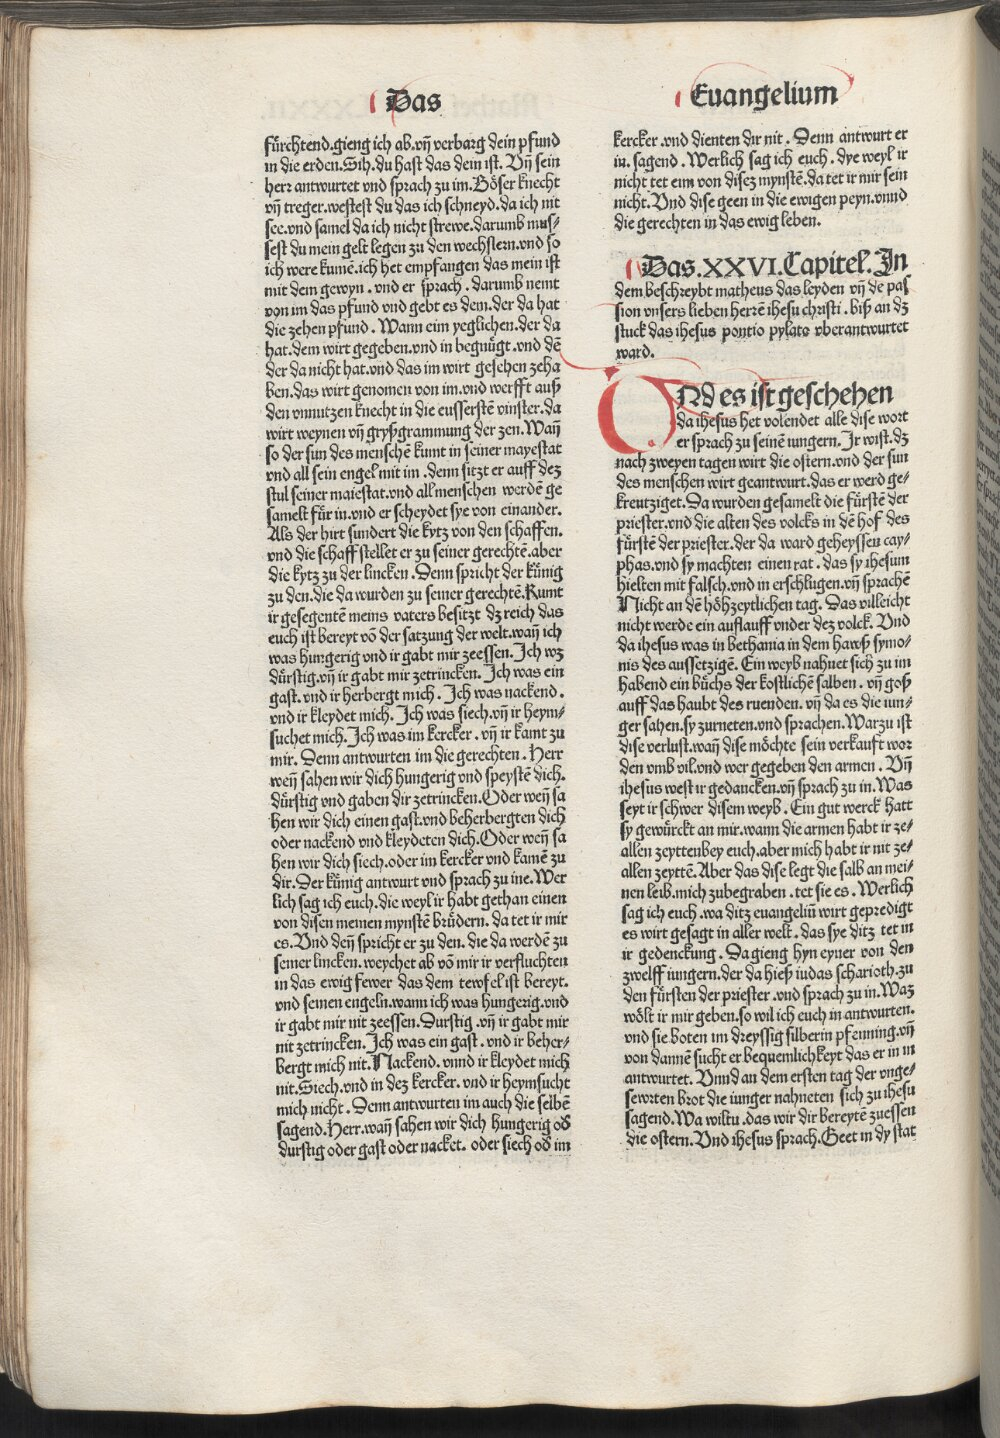 Das
Euangelium
fürchtend.gieng ich ab.vn̄ verbarg dein pfund
in die erden.Sih.du hast das dein ist. Vn̄ sein
herr antwurtet vnd sprach zu im.Böser knecht
vn̄ treger.westest du das ich schneyd.da ich nit
see.vnd samel da ich nicht strewe.darumb mus-
sest du mein gelt legen zu den wechslern.vnd so
ich were kumē.ich het empfangen das mein ist
mit dem gewyn . vnd er sprach . darumb nemt
von im das pfund vnd gebt es dem.der da hat
die zehen pfund . Wann eim yeglichen.der da
hat.dem wirt gegeben.vnd in begnügt.vnd dē
der da nicht hat.vnd das im wirt gesehen zeha
ben.das wirt genomen von im.vnd werfft auß
den vnnutzen knecht in die eusserstē vinster.da
wirt weynen vn̄ gryßgrammung der zen.Wan̄
so der sun des menschē kumt in seiner mayestat
vnd all sein engel mit im .denn sitzt er auff dez
stul seiner maiestat.vnd all menschen werdē ge
samelt für in.vnd er scheydet sye von einander.
Als der hirt sundert die kytz von den schaffen.
vnd die schaff stellet er zu seiner gerechtē.aber
die kytz zu der lincken .Denn spricht der künig
zu den.die da wurden zu seiner gerechtē.Kumt
ir gesegentē meins vaters besitzt dz reich das
euch ist bereyt vō der satzung der welt.wan̄ ich
was hungerig vnd ir gabt mir zeessen.Ich wz
dürstig.vn̄ ir gabt mir zetrincken. Ich was ein
gast. vnd ir herbergt mich . Ich was nackend .
vnd ir kleydet mich. Ich was siech.vn̄ ir heym-
suchet mich.Ich was im kercker . vn̄ ir kamt zu
mir . Denn antwurten im die gerechten . Herr
wen̄ sahen wir dich hungerig vnd speystē dich.
dürstig vnd gaben dir zetrincken.Oder wen̄ sa
hen wir dich einen gast.vnd beherbergten dich
oder nackend vnd kleydeten dich.Oder wen̄ sa
hen wir dich siech.oder im kercker vnd kamē zu
dir.Der künig antwurt vnd sprach zu ine.Wer
lich sag ich euch.die weyl ir habt gethan einen
von disen meinen mynstē brüdern. da tet ir mir
es.Vnd den̄ spricht er zu den. die da werdē zu
seiner lincken.weychet ab vō mir ir verfluchten
in das ewig fewer das dem tewfel ist bereyt.
vnd seinen engeln.wann ich was hungerig.vnd
ir gabt mir nit zeessen.Durstig .vn̄ ir gabt mir
nit zetrincken.Ich was ein gast . vnd ir beher-
bergt mich nit.Nackend. vnnd ir kleydet mich
nit.Siech.vnd in dez kercker. vnd ir heymsucht
mich nicht . Denn antwurten im auch die selbē
sagend.Herr.wan̄ sahen wir dich hungerig od
durstig oder gast oder nacket. oder siech od im
kercker .vnd dienten dir nit . Denn antwurt er
in. sagend .Werlich sag ich euch . dye weyl ir
nicht tet eim von disez mynstē.da tet ir mir sein
nicht.Vnd dise geen in die ewigen peyn.vnnd
die gerechten in das ewig leben.
Das.XXVI.Capitel.In
dem beschreybt matheus das leyden vn̄ de pas
sion vnsers lieben herrē ihesu christi . biß an dz
stuck das ihesus pontio pylato vberantwurtet
ward.
VNd es ist geschehen
da ihesus het volendet alle dise wort
er sprach zu seinē iungern. Ir wist.dz
nach zweyen tagen wirt die ostern.vnd der sun
des menschen wirt geantwurt.das er werd ge-
kreutziget.Da wurden gesamelt die fürstē der
priester.vnd die alten des volcks in dē hof des
fürstē der priester.der da ward geheyssen cay-
phas.vnd sy machten einen rat . das sy ihesum
hielten mit falsch.vnd in erschlugen.vn̄ sprachē
Nicht an dē höhzeytlichen tag. Das villeicht
nicht werde ein auflauff vnder dez volck. Vnd
da ihesus was in bethania in dem hawß symo-
nis des aussetzigē. Ein weyb nahnet sich zu im
habend ein büchs der kostlichē salben . vn̄ goß
auff das haubt des ruenden. vn̄ da es die iun-
ger sahen.sy zurneten.vnd sprachen.Warzu ist
dise verlust.wan̄ dise möchte sein verkauft wor
den vmb vil.vnd wer gegeben den armen . Vn̄
ihesus west ir gedancken.vn̄ sprach zu in.Was
seyt ir schwer disem weyb . Ein gut werck hatt
sy gewürckt an mir.wann die armen habt ir ze-
allen zeyttenbey euch.aber mich habt ir nit ze-
allen zeyttē.Aber das dise legt die salb an mei-
nen leib.mich zubegraben . tet sie es . Werlich
sag ich euch .wa ditz euangeliū wirt gepredigt
es wirt gesagt in aller welt . das sye ditz tet in
ir gedenckung . Da gieng hyn eyner von den
zwelff iungern.der da hieß iudas scharioth.zu
den fürsten der priester .vnd sprach zu in.Waz
wölt ir mir geben.so wil ich euch in antwurten.
vnd sie boten im dreyssig silberin pfenning.vn̄
von dannē sucht er bequemlichkeyt das er in in
antwurtet. Vnnd an dem ersten tag der vnge-
sewrten brot die iunger nahneten sich zu ihesu
sagend.Wa wiltu .das wir dir bereytē zuessen
die ostern.Vnd ihesus sprach.Geet in dy stat